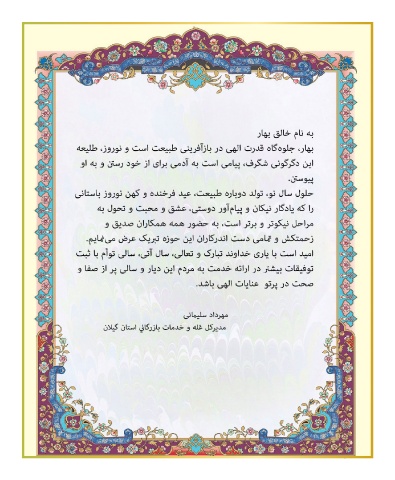 به نام خالق بهار
بهار، جلوه‌گاه قدرت الهی در بازآفرینی طبیعت است و نوروز، طلیعه
این دگرگونی شگرف، پیامی است به آدمی برای از خود رستن و به او
پیوستن.
حلول سال نو، تولد دوباره طبیعت، عید فرخنده و کهن نوروز باستانی
را که یادگار نیکان و پیام‌آور دوستی، عشق و محبت و تحول به
مراحل نیکوتر و برتر است، به حضور همه همکاران صدیق و
زحمتکش و تمامی دست اندرکاران این حوزه تبریک عرض می‌نمایم.
امید است با یاری خداوند تبارک و تعالی، سال آتی، سالی توأم با ثبت
توفیقات بیشتر در ارائه خدمت به مردم این دیار و سالی پر از صفا و
صحت در پرتو عنایات الهی باشد.
مهرداد سلیمانی
مدیرکل غله و خدمات بازرگانی استان گیلان